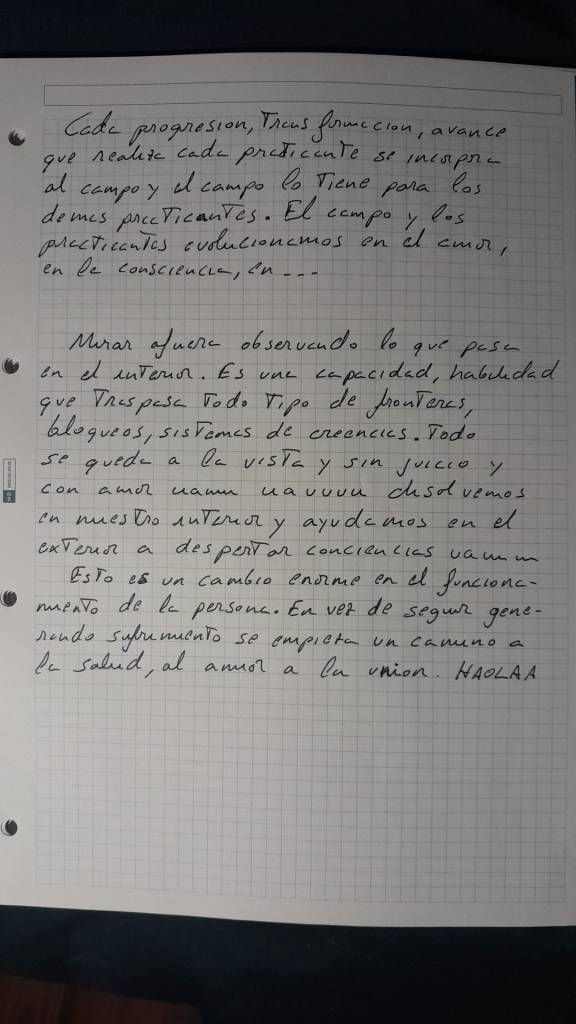 Cada progresion, Transformacion, avance
que realiza cada practicante se incorpora
al campo y el campo lo Tiene para los
demas practicantes. El campo y los
practicantes evolucionamos en el amor,
en la consciencia, en ---
Mirar afuera observando lo que pasa
en el interior. Es una capacidad, habilidad
que Traspasa Todo Tipo de fronteras,
bloqueos, sistemas de creencias. Todo
se queda a la vista y sin juicio y
con amor uamm uauuuu disolvemos
en nuestro interior y ayudamos en el
exterior a despertar conciencias uamm
Esto es un cambio enorme en el funciona-
miento de la persona. En vez de seguir gene-
rando sufrimiento se empieza un camino a
la salud, al amor a la union. HAOLAA